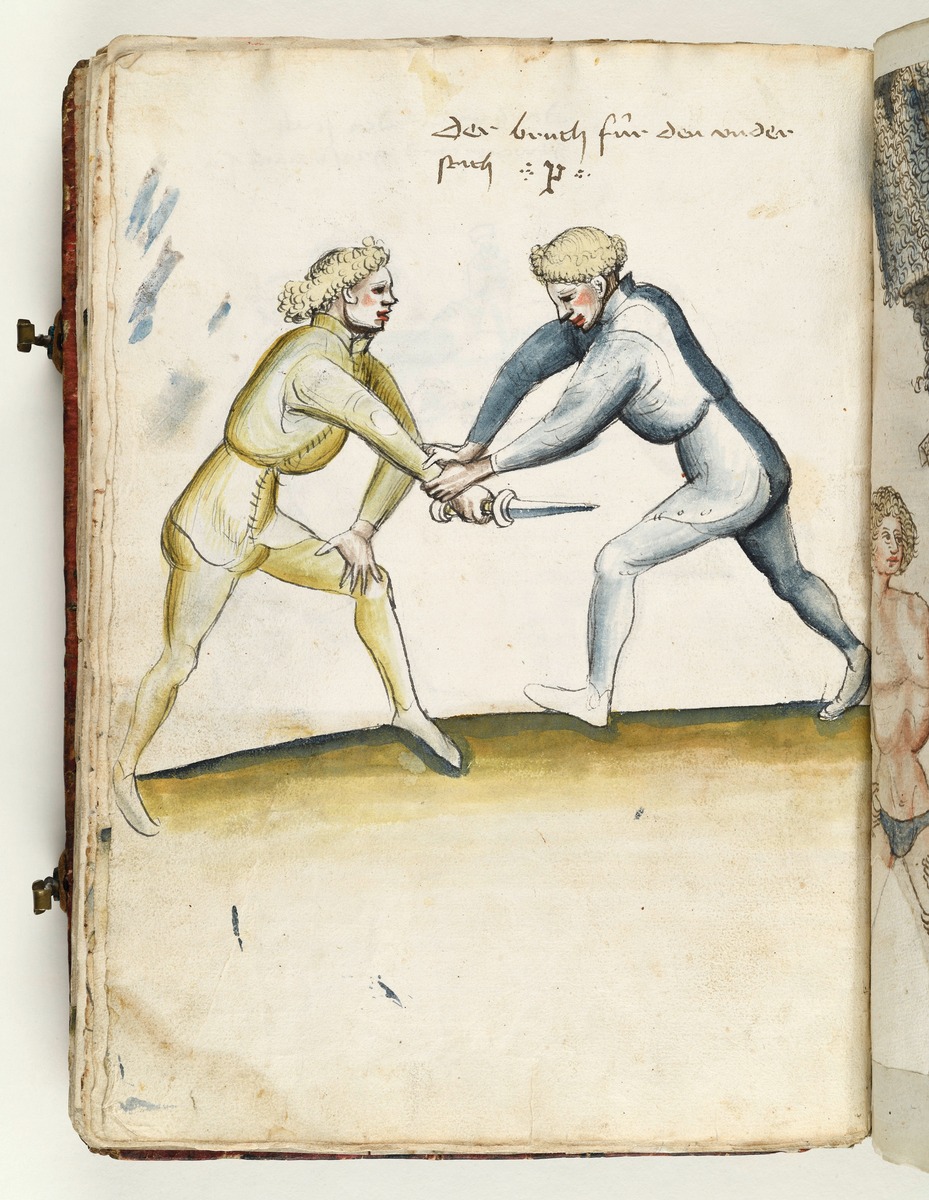 der bruch für den vnder
stich p